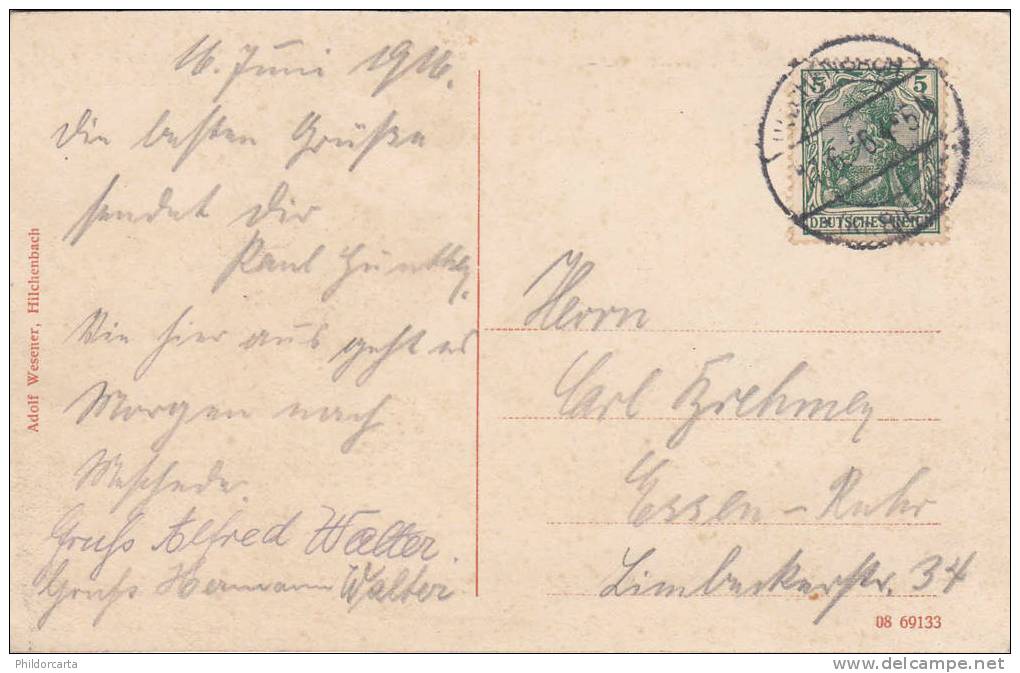 16. Juni 1916.
Die besten Grüße
sendet Dir
Paul
Von hier aus geht es
Morgen nach
Meschede.
Gruss Alfred Walter.
Gruss Hermann Walter
Adolf Wesener, Hilchenbach
5 5
DEUTSCHES REICH
Herrn
Carl
Essen-Ruhr
Limbeckerstr. 34
08 69133
Phildorcarta
www.delcampe.net